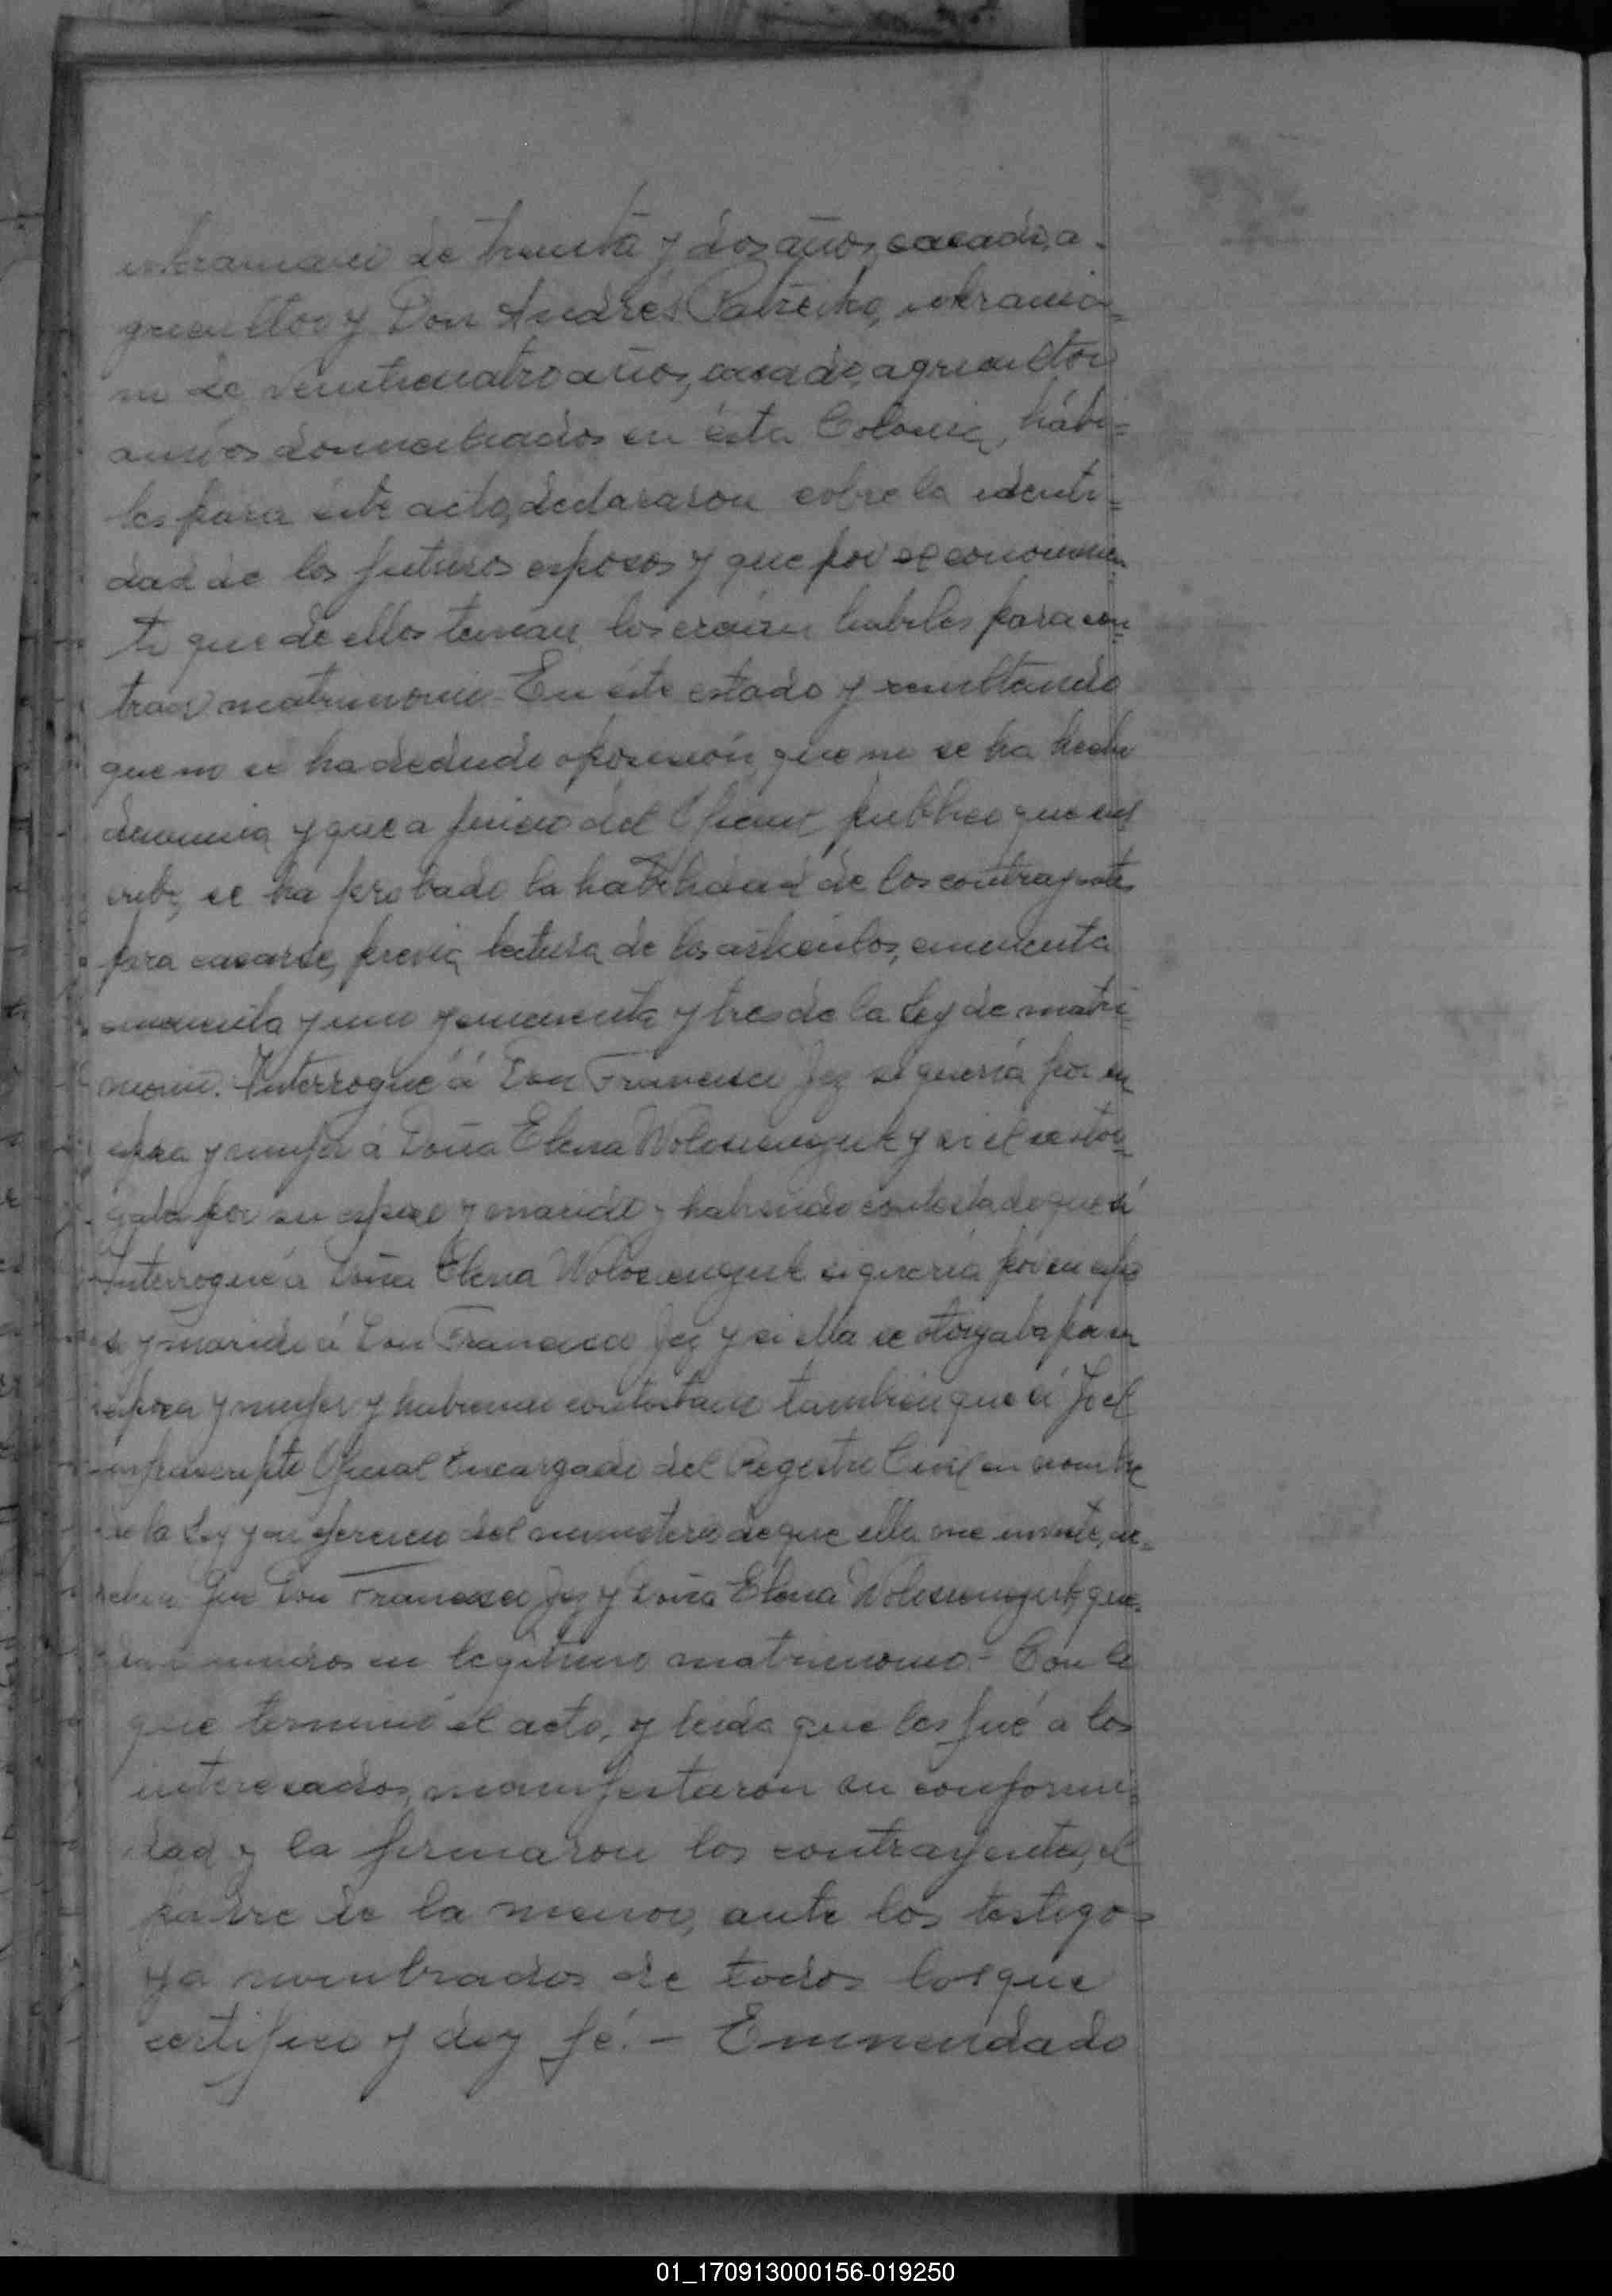 ukraniano de treinta y dos años, casado, a-
gricultor y Don Andrés ukrania=
no de veinticuatro años, casado, agricultor
ambos domiciliados en ésta Colonia, hábi=
les para éste acto, declararon sobre la identi=
dad de los futuros esposos y que por el conocimien
to que de ellos tenían, los creían habiles para con=
traer matrimonio. En éste estado y resultando
que no se ha deducido oposición, que no se ha hecho
denuncia y que a juicio del Oficial público que sus
cribe, se ha probado la habilidad de los contrayentes
para casarse, previa lectura de los articulos, cincuenta
cincuenta y uno y cincuenta y tres de la Ley de matri
monio. Interrogué á Don Francisco Jez si quería por su
esposa y mujer á Doña Elena Wolosienczuk y si el se otor=
gaba por su esposo y marido y habiendo contestado que sí
Interrogué á Doña Elena Wolosienczuk si quería por su espo
so y marido á Don Francisco Jez y si ella se otorgaba por su
esposa y mujer y habiendo contestado también que sí Yo el
infrascripto Oficial Encargado del Registro Civil en nombre
de la Ley y en ejercicio del ministerio de que ella me inviste, de=
claro Que Don Francisco Jez y Doña Elena Wolosienczuk, que=
dan unidos en legítimo matrimonio.- Con lo
que terminó el acto, y leida que les fué a los
interesados, manifestaron su conformi=
dad y la firmaron los contrayentes, el
padre de la menor, ante los testigos
ya nombrados de todos los que
certifico y doy fé. - Emmendado
01_170913000156-019250